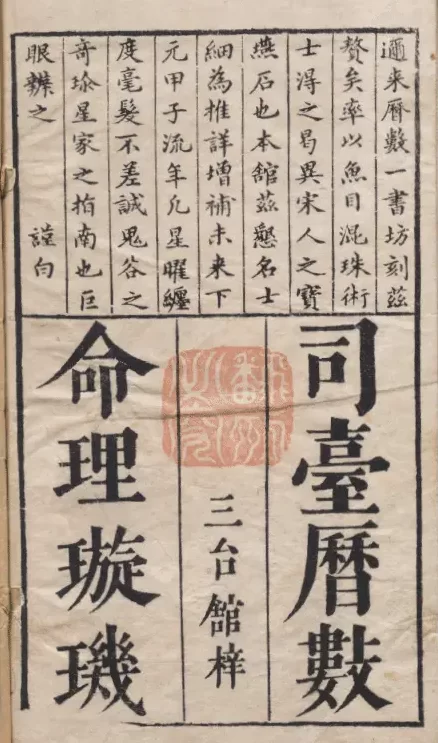 邇来曆數一書坊刻茲
贅矣率以魚目混珠術
士淂之曷異宋人之寶
燕石也本舘茲懇名士
細為推詳增補未来下
元甲子流年凢星曜纏
度毫髮不差誠鬼谷之
奇珎星家之指南也巨
眼辨之　謹白
司臺曆數
三台舘梓
命理璇璣